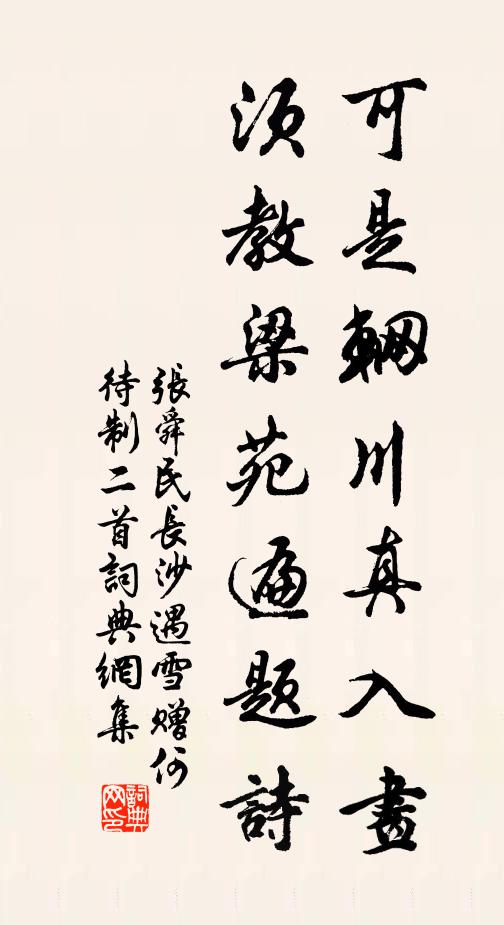 可是輞川真入畫
須教梁苑遍題詩
張舜民長沙遇雪贈何
待制二首詞典網集
詞典
网印